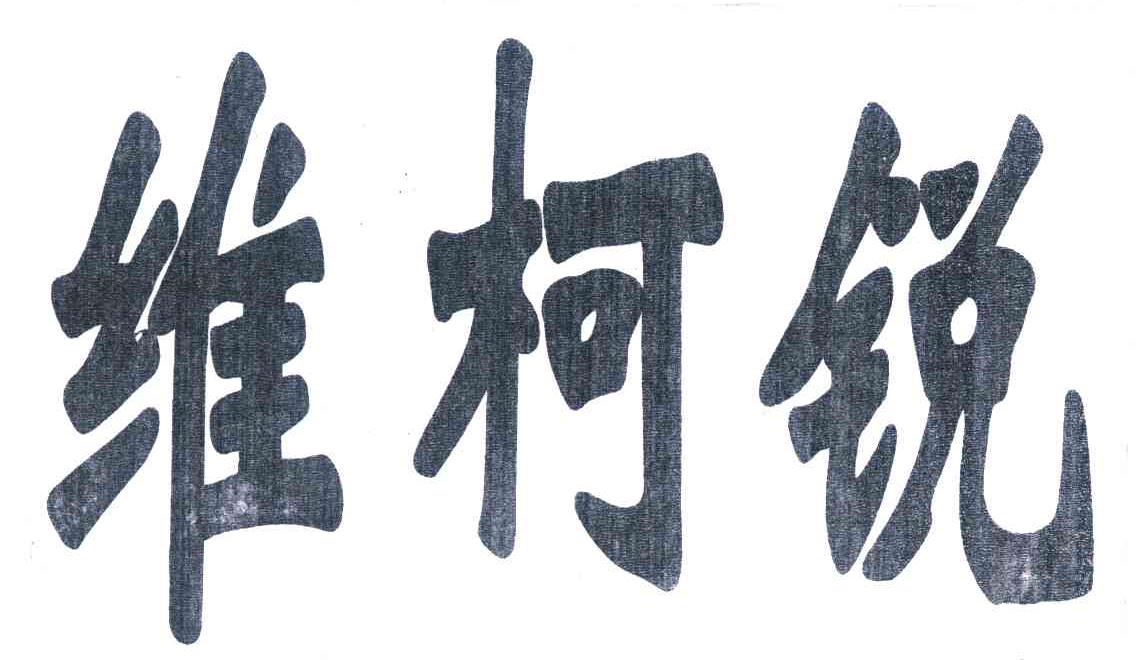 维柯锐